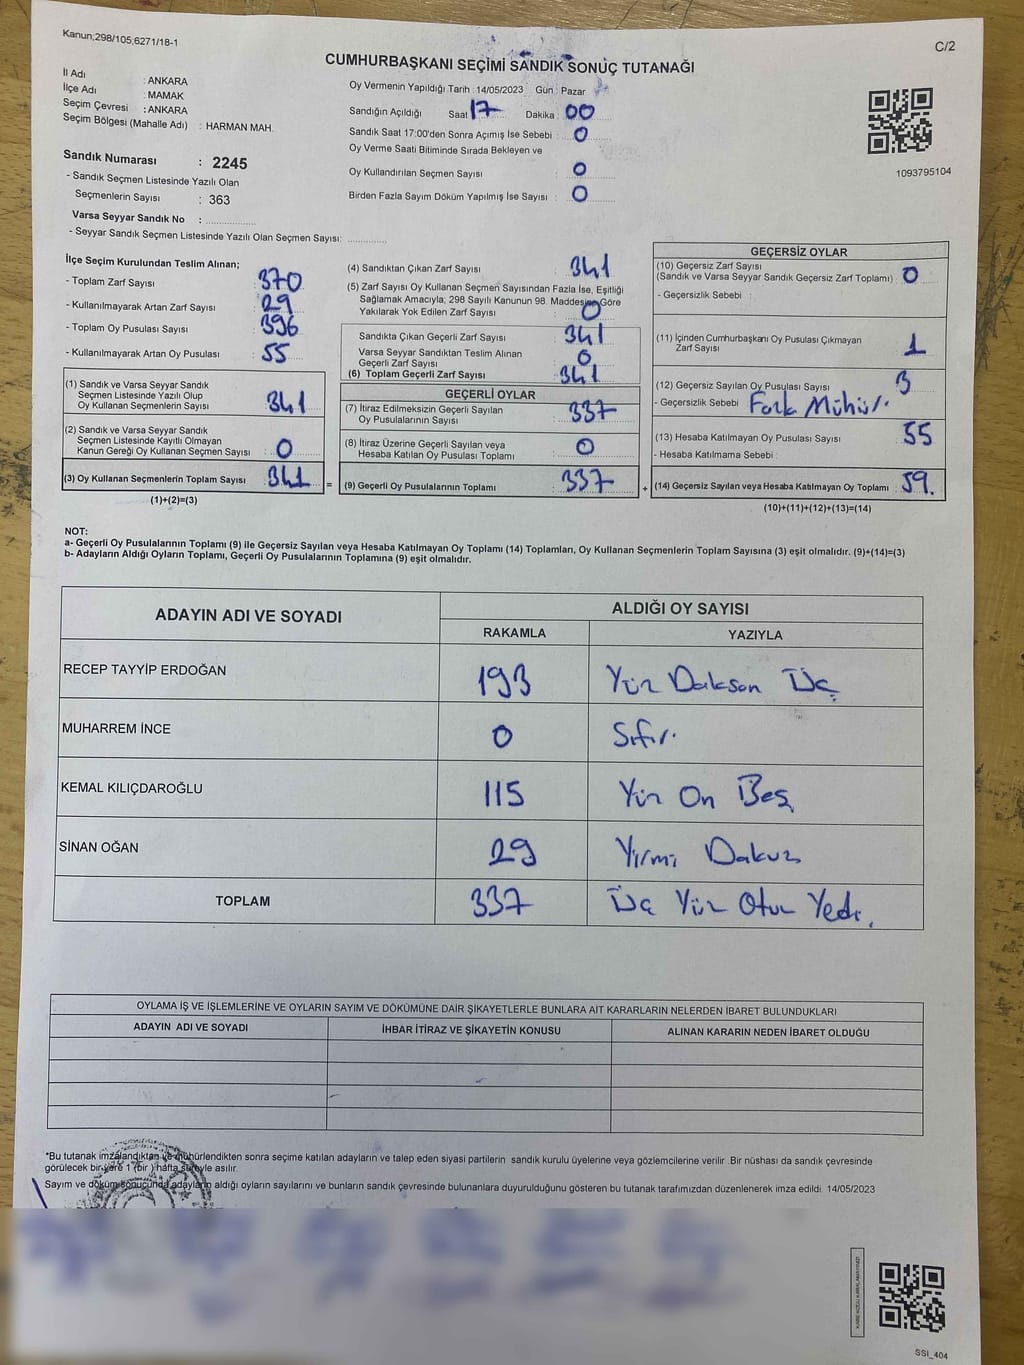 Kanun;298/105,6271/18-1
C/2
CUMHURBAŞKANI SEÇİMİ SANDIK SONUÇ TUTANAĞI
İl Adı : ANKARA
İlçe Adı : MAMAK
Seçim Çevresi : ANKARA
Seçim Bölgesi (Mahalle Adı) : HARMAN MAH.
Sandık Numarası : 2245
- Sandık Seçmen Listesinde Yazılı Olan
Seçmenlerin Sayısı : 363
Varsa Seyyar Sandık No :
- Seyyar Sandık Seçmen Listesinde Yazılı Olan Seçmen Sayısı:
Oy Vermenin Yapıldığı Tarih : 14/05/2023 Gün : Pazar
Sandığın Açıldığı Saat 17 Dakika : 00
Sandık Saat 17:00'den Sonra Açımış İse Sebebi : 0
Oy Verme Saati Bitiminde Sırada Bekleyen ve
Oy Kullandırılan Seçmen Sayısı : 0
Birden Fazla Sayım Döküm Yapılmış İse Sayısı : 0
1093795104
İlçe Seçim Kurulundan Teslim Alınan;
- Toplam Zarf Sayısı : 370
- Kullanılmayarak Artan Zarf Sayısı : 29
- Toplam Oy Pusulası Sayısı : 396
- Kullanılmayarak Artan Oy Pusulası : 55
(1) Sandık ve Varsa Seyyar Sandık
Seçmen Listesinde Yazılı Olup
Oy Kullanan Seçmenlerin Sayısı : 341
(2) Sandık ve Varsa Seyyar Sandık
Seçmen Listesinde Kayıtlı Olmayan
Kanun Gereği Oy Kullanan Seçmen Sayısı : 0
(3) Oy Kullanan Seçmenlerin Toplam Sayısı : 341 =
(1)+(2)=(3)
(4) Sandıktan Çıkan Zarf Sayısı : 341
(5) Zarf Sayısı Oy Kullanan Seçmen Sayısından Fazla İse, Eşitliği
Sağlamak Amacıyla; 298 Sayılı Kanunun 98. Maddesine Göre
Yakılarak Yok Edilen Zarf Sayısı : 0
Sandıkta Çıkan Geçerli Zarf Sayısı : 341
Varsa Seyyar Sandıktan Teslim Alınan
Geçerli Zarf Sayısı : 0
(6) Toplam Geçerli Zarf Sayısı : 341
GEÇERLİ OYLAR
(7) İtiraz Edilmeksizin Geçerli Sayılan
Oy Pusulalarının Sayısı : 337
(8) İtiraz Üzerine Geçerli Sayılan veya
Hesaba Katılan Oy Pusulası Toplamı : 0
(9) Geçerli Oy Pusulalarının Toplamı : 337 +
GEÇERSİZ OYLAR
(10) Geçersiz Zarf Sayısı
(Sandık ve Varsa Seyyar Sandık Geçersiz Zarf Toplamı) : 0
- Geçersizlik Sebebi :
(11) İçinden Cumhurbaşkanı Oy Pusulası Çıkmayan
Zarf Sayısı : 1
(12) Geçersiz Sayılan Oy Pusulası Sayısı : 3
- Geçersizlik Sebebi : Fazla Mühür.
(13) Hesaba Katılmayan Oy Pusulası Sayısı : 55
- Hesaba Katılmama Sebebi :
(14) Geçersiz Sayılan veya Hesaba Katılmayan Oy Toplamı : 59.
(10)+(11)+(12)+(13)=(14)
NOT:
a- Geçerli Oy Pusulalarının Toplamı (9) ile Geçersiz Sayılan veya Hesaba Katılmayan Oy Toplamı (14) Toplamları, Oy Kullanan Seçmenlerin Toplam Sayısına (3) eşit olmalıdır. (9)+(14)=(3)
b- Adayların Aldığı Oyların Toplamı, Geçerli Oy Pusulalarının Toplamına (9) eşit olmalıdır.
ADAYIN ADI VE SOYADI ALDIĞI OY SAYISI
RAKAMLA YAZIYLA
RECEP TAYYİP ERDOĞAN 193 Yüz Doksan Üç
MUHARREM İNCE 0 Sıfır.
KEMAL KILIÇDAROĞLU 115 Yüz On Beş
SİNAN OĞAN 29 Yirmi Dokuz
TOPLAM 337 Üç Yüz Otuz Yedi.
OYLAMA İŞ VE İŞLEMLERİNE VE OYLARIN SAYIM VE DÖKÜMÜNE DAİR ŞİKAYETLERLE BUNLARA AİT KARARLARIN NELERDEN İBARET BULUNDUKLARI
ADAYIN ADI VE SOYADI İHBAR İTİRAZ VE ŞİKAYETİN KONUSU ALINAN KARARIN NEDEN İBARET OLDUĞU
*Bu tutanak imzalandıktan ve mühürlendikten sonra seçime katılan adayların ve talep eden siyasi partilerin sandık kurulu üyelerine veya gözlemcilerine verilir. Bir nüshası da sandık çevresinde
görülecek bir yere 1 (bir) hafta süreyle asılır.
Sayım ve döküm sonucunda adayların aldığı oyların sayılarını ve bunların sandık çevresinde bulunanlara duyurulduğunu gösteren bu tutanak tarafımızdan düzenlenerek imza edildi. 14/05/2023
SSI_404